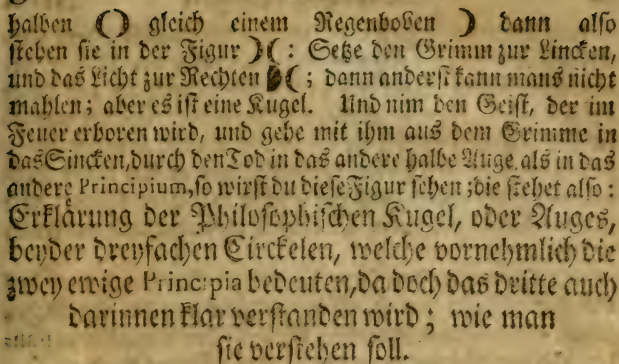 halben () gleich einem Regenbogen ) dann also
stehen sie in der Figur )( : Setze den Grimm zur Lincken,
und das Licht zur Rechten )( ; dann anderst kann mans nicht
mahlen; aber es ist eine Kugel. Und nim den Geist, der im
Feuer erboren wird, und gehe mit ihm aus dem Grimme in
das Sincken, durch den Tod in das andere halbe Auge, als in das
andere Principium, so wirst du diese Figur sehen; die stehet also:
Erklärung der Philosophischen Kugel, oder Auges,
beyder dreyfachen Circkelen, welche vornehmlich die
zwey ewige Principia bedeuten, da doch das dritte auch
darinnen klar verstanden wird; wie man
sie verstehen soll.